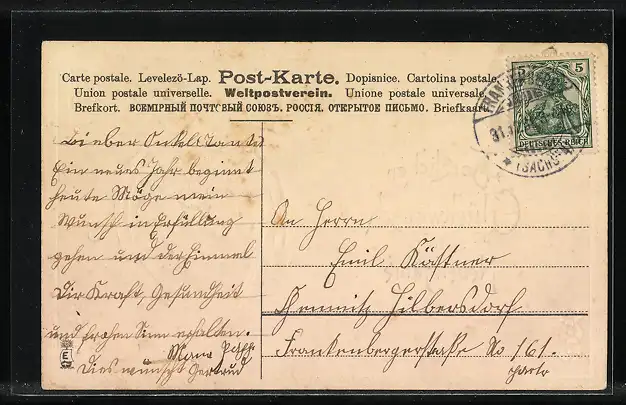 Carte postale. Levelezö-Lap. Post-Karte. Dopisnice. Cartolina postale.
Union postale universelle. Weltpostverein. Unione postale universale.
Brefkort. ВСЕМІРНЫЙ ПОЧТОВЫЙ СОЮЗЪ. РОССІЯ. ОТКРЫТОЕ ПИСЬМО. Briefkaart.
5
DEUTSCHES REICH
31.
(SACHS
Lieber Onkel Tante
Ein neues Jahr beginnt
heute Möge mein
Wunsch in Erfüllung
gehen und der Himmel
Dir Kraft, Gesundheit
und frohen Sinn erhalten.
Dies wünscht Gertrud
An Herrn
Emil Kästner
Chemnitz Hilbersdorf
Frankenbergerstraße No 161.
E